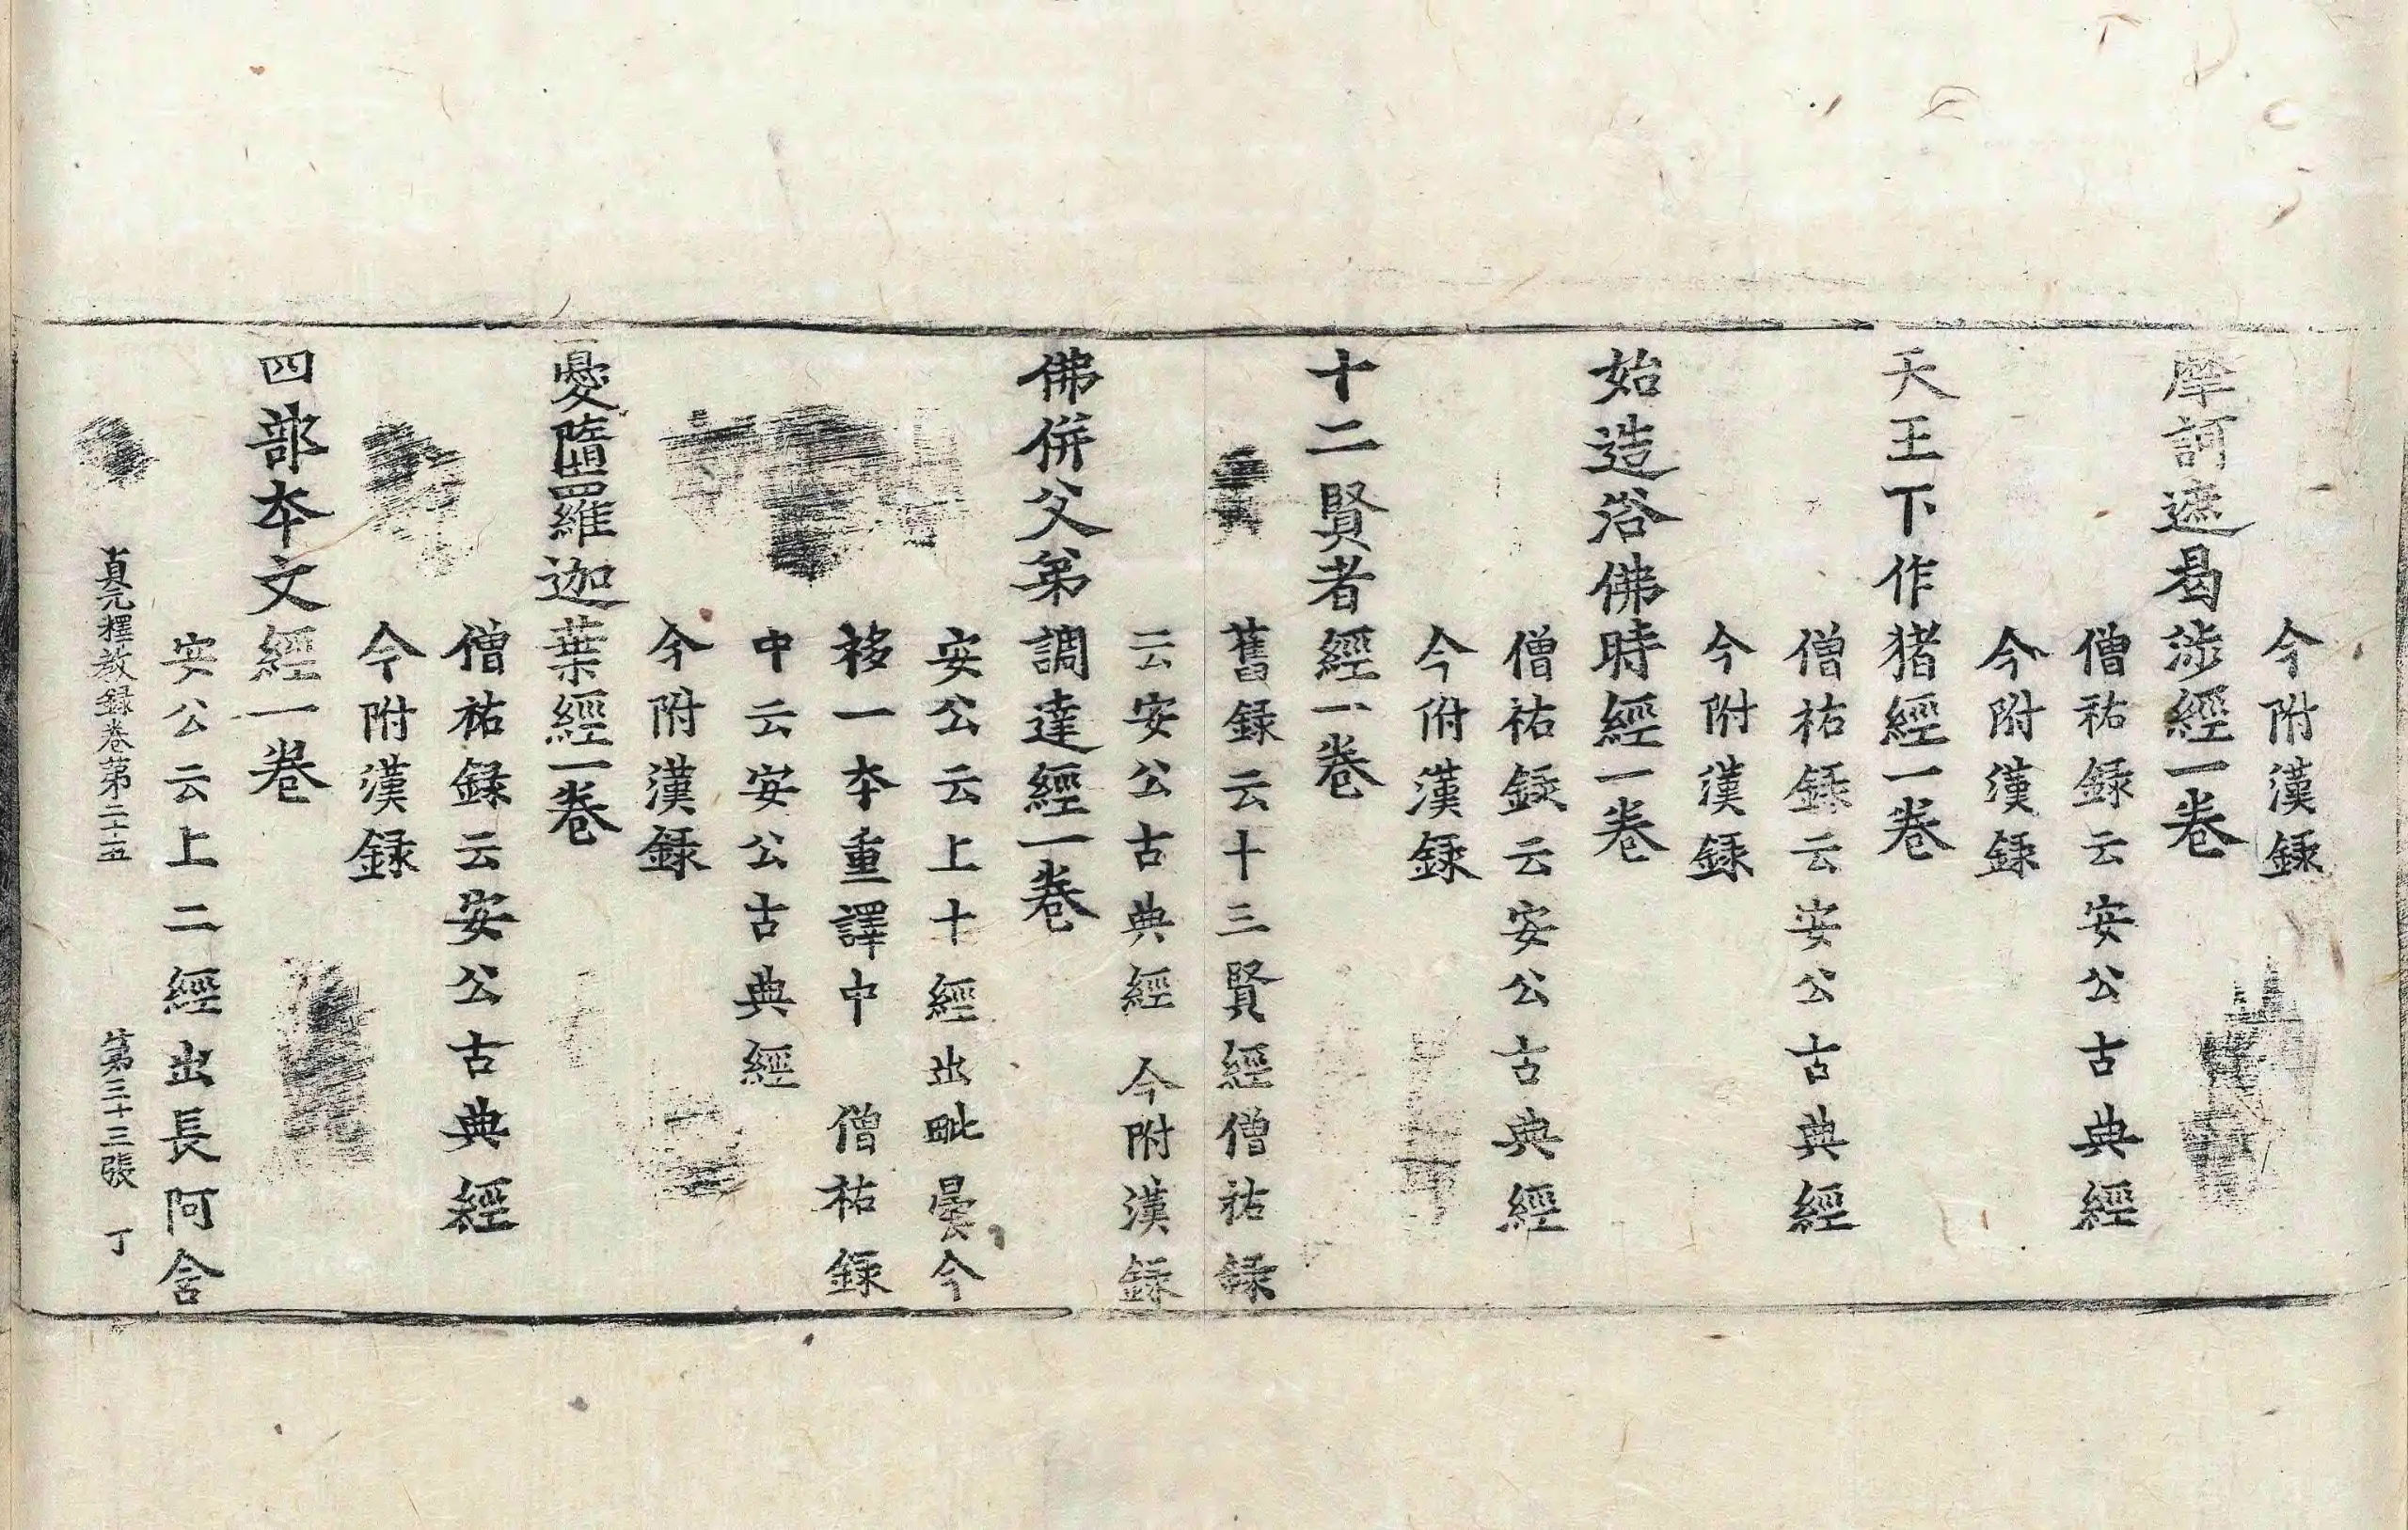 今附漢録
摩訶遮曷渉經一卷
僧祐録云安公古典經
今附漢録
天王下作猪經一卷
僧祐録云安公古典經
今附漢録
始造浴佛時經一卷
僧祐録云安公古典經
今附漢録
十二賢者經一卷
舊録云十三賢經僧祐録
云安公古典經 今附漢録
佛併父弟調達經一卷
安公云上十經出毗曇今
移一本重譯中 僧祐録
中云安公古典經
今附漢録
憂墮羅迦葉經一卷
僧祐録云安公古典經
今附漢録
四部本文經一卷
安公云上二經出長阿含
貞元釋教録卷第二十五 第三十三張 丁